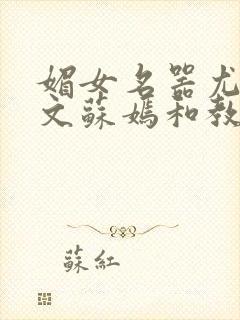 媚女名器尤
文蘇媽和教
蘇紅